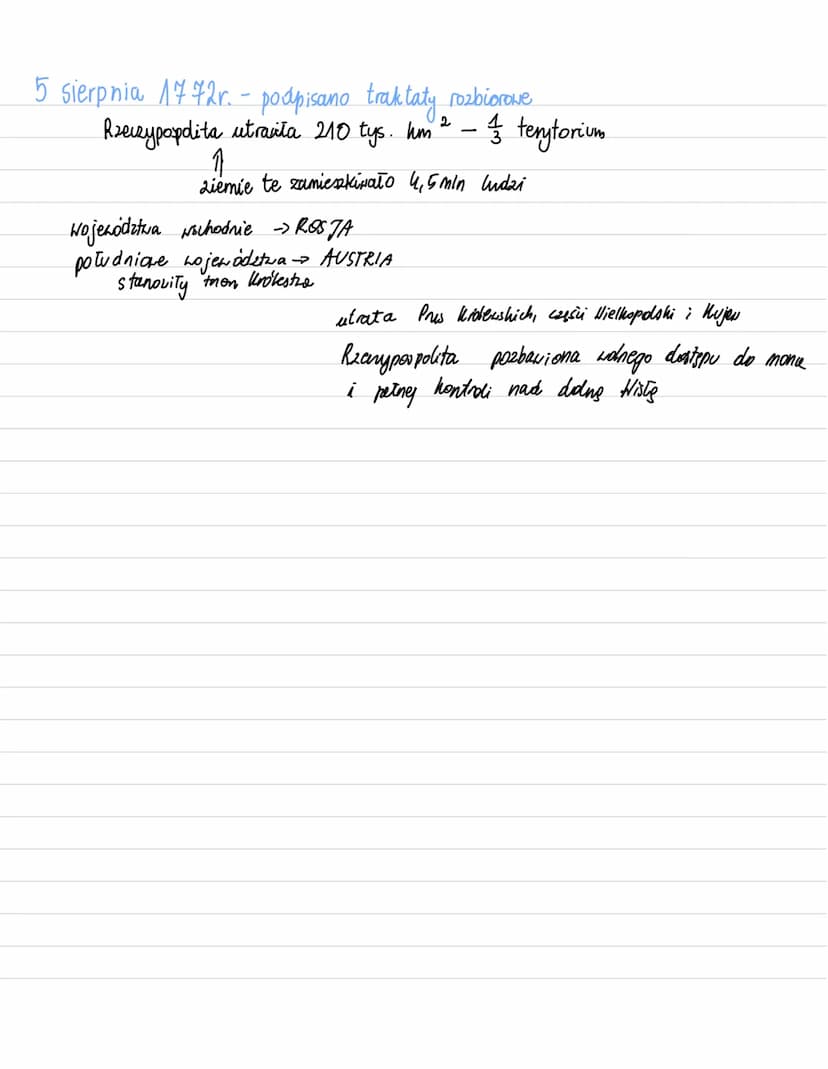 5 sierpnia 1772r. - podpisano traktaty rozbiorowe
Rzeczypospolita utraciła 210 tys. km² - 1/3 terytorium
⇑
ziemie te zamieszkiwało 4,5 mln ludzi
województwa wschodnie → ROSJA
południowe województwa → AUSTRIA
stanowiły trzon Królestwa
utrata Prus Królewskich, części Wielkopolski i Kujaw
Rzeczypospolita pozbawiona wolnego dostępu do morza
i pełnej kontroli nad dolną Wisłą